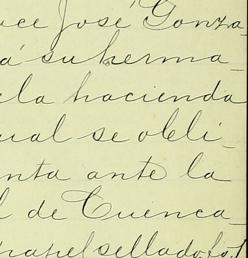 ce José Gonza-
á su herma-
la hacienda
ual se obli-
nta ante la
l de Cuenca
papel sellado, fo